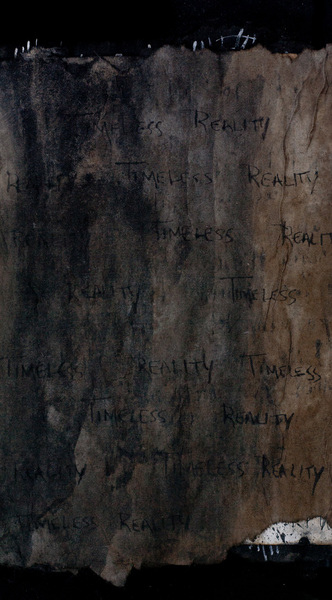 TIMELESS REALITY
REALITY TIMELESS REALITY
REALITY TIMELESS REALITY
REALITY TIMELESS
TIMELESS REALITY TIMELESS
TIMELESS REALITY
REALITY TIMELESS REALITY
TIMELESS REALITY